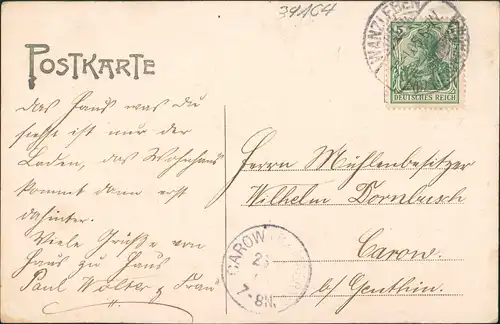 39164
POSTKARTE
WANZLEBEN
5 5
DEUTSCHES REICH
Das Haus was du
siehst ist nur der
Laden, das Wohnhaus
kommt dann erst
dahinter.
Viele Grüße von
Haus zu Haus
Paul Wolter & Frau
Herrn Mühlenbesitzer
Wilhelm Dornbusch
Carow.
b/ Genthin.
CAROW
7-8N.